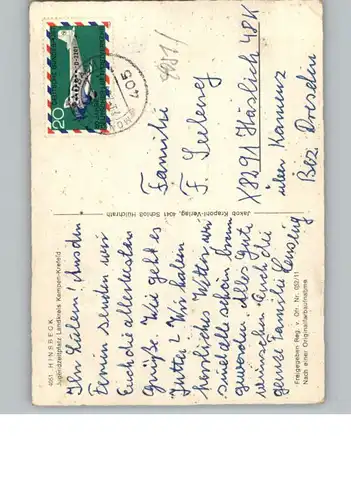 4051 HINSBECK
Jugendzeltplatz Landkreis Kempen-Krefeld
Ihr Lieben, Aus den
Ferien senden wir
Euch die allerbesten
Grüße. Wie geht es
Jutta? Wir haben
herrliches Wetter, wir
sind alle schon braun
geworden. Alles gute
wünschen Euch die
ganze Familie
Freigegeben Reg. v. Obr. Nr. 052/11
Nach einer Originalfarbaufnahme
Jakob Krapohl-Verlag, 4041 Schloß Hülchrath
20
405
Familie
F.
X8291 Häslich 48K
über Kamenz
Bez. Dresden